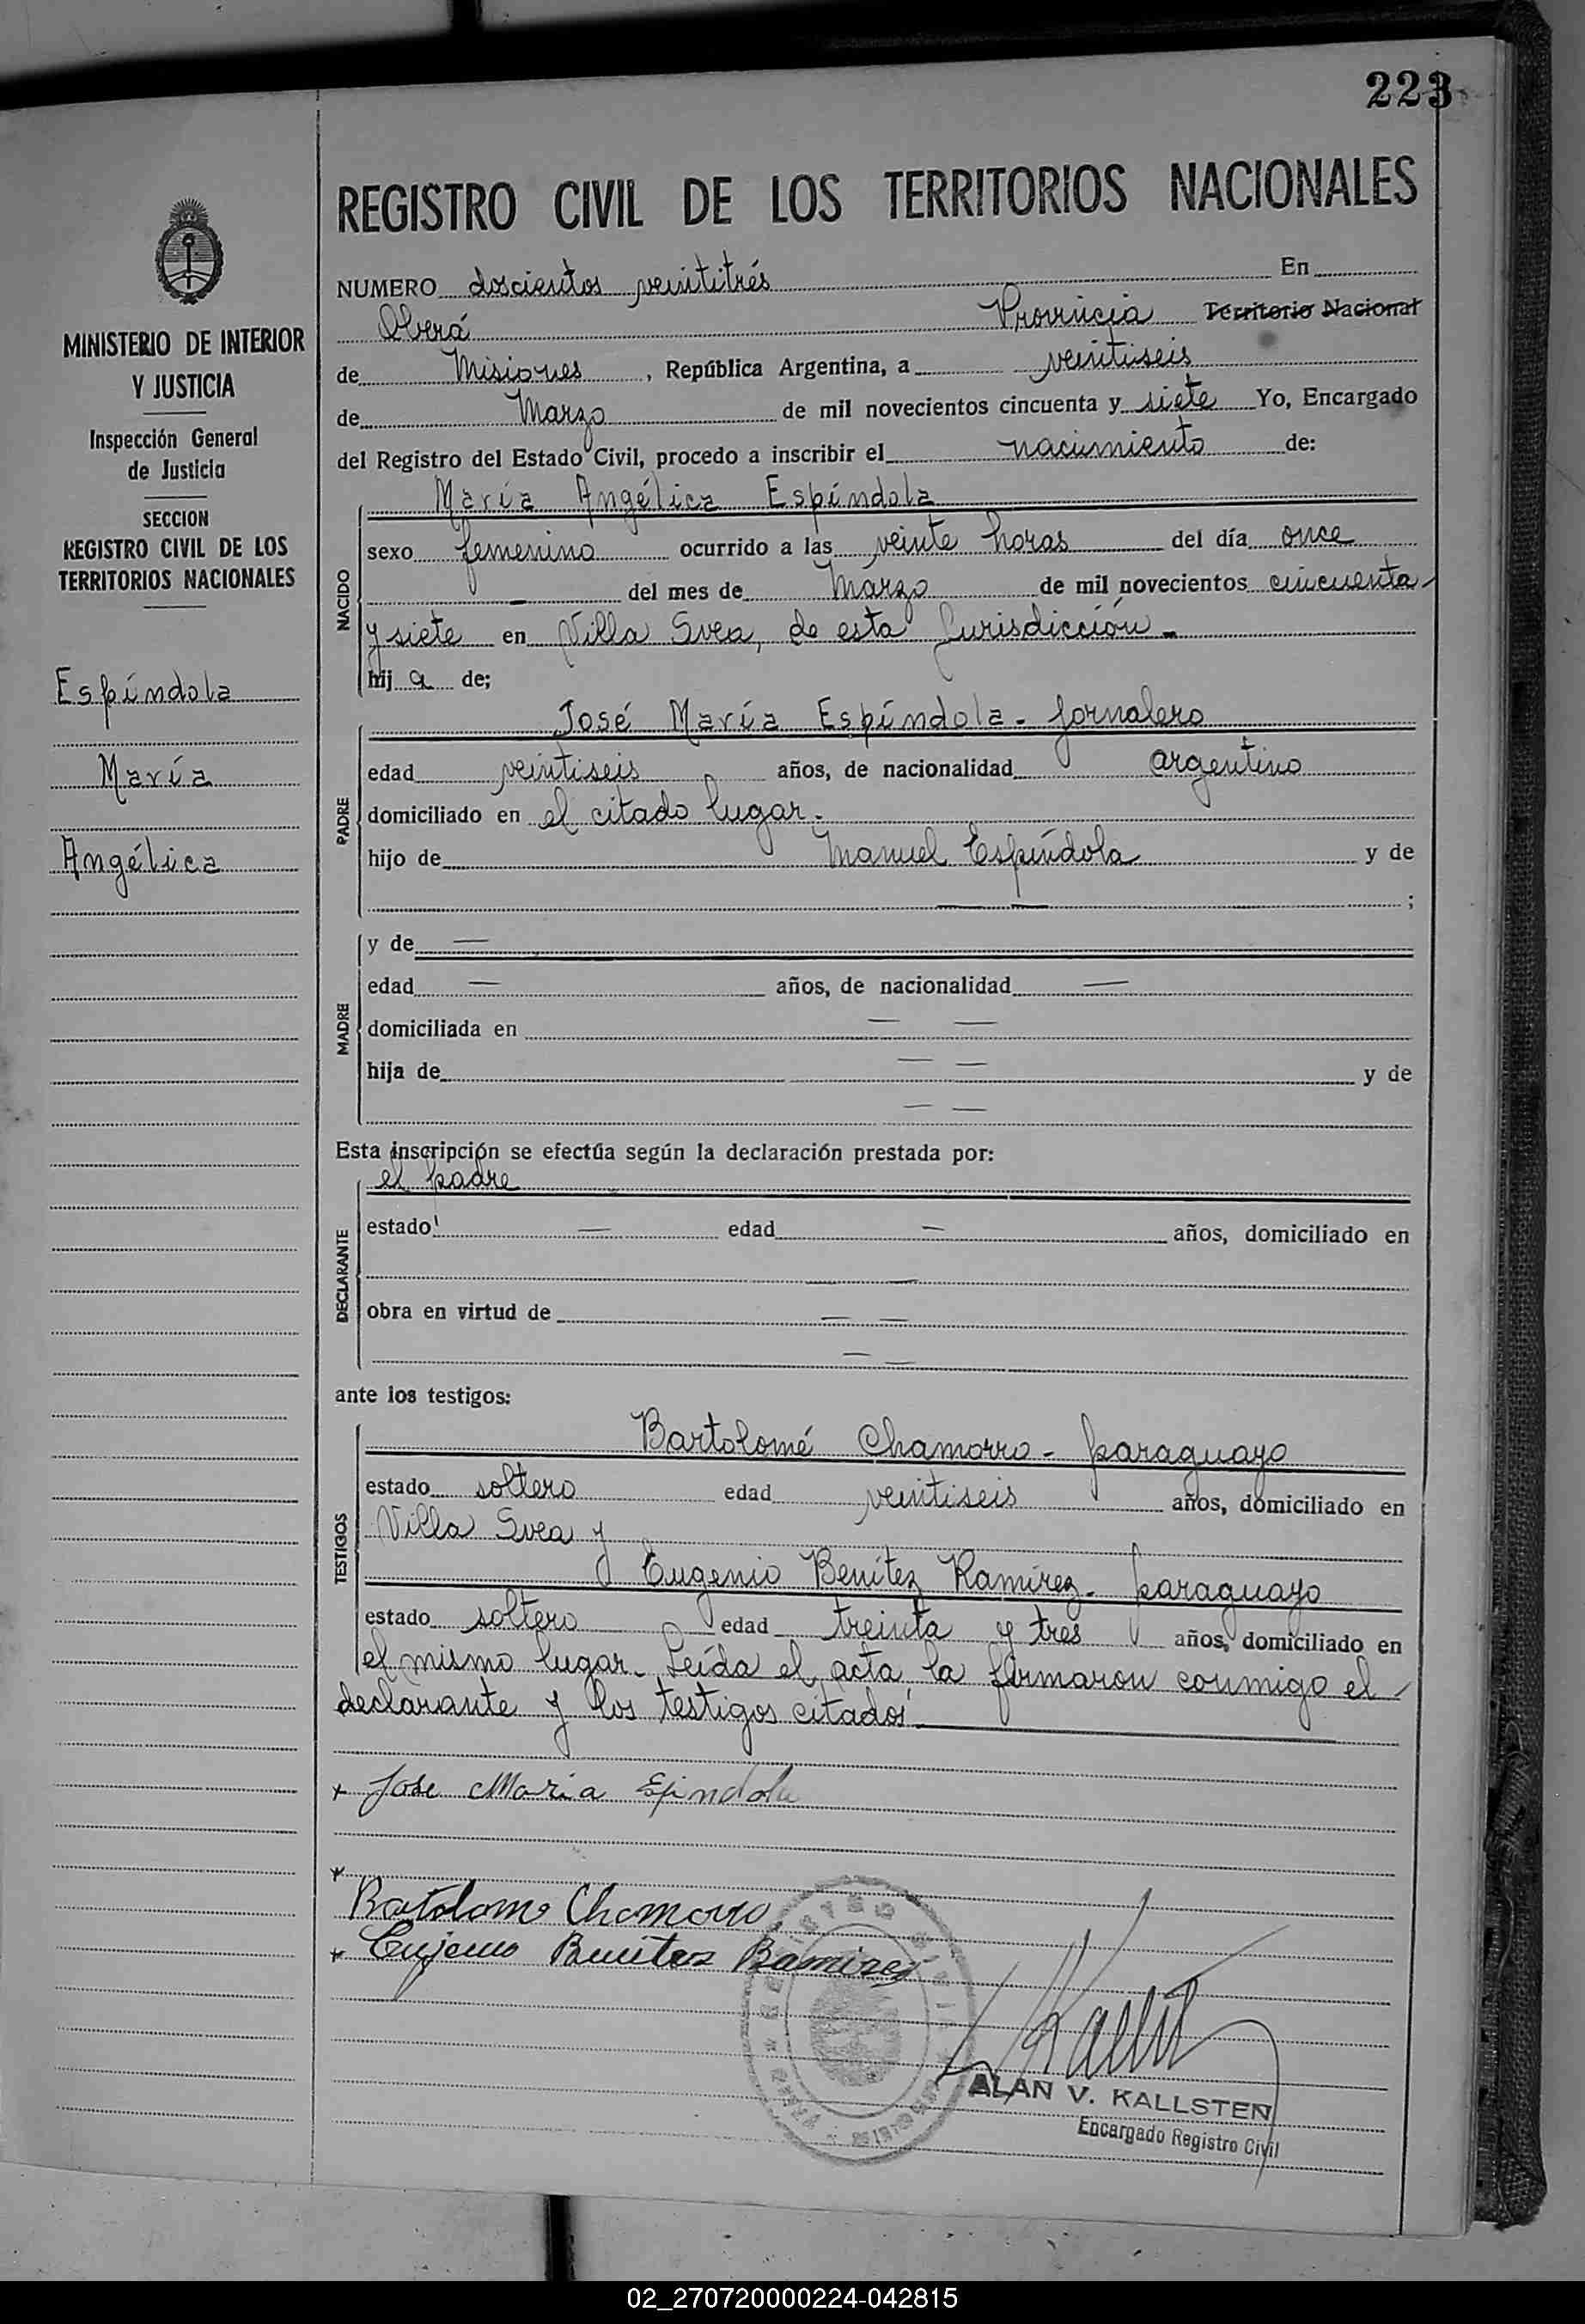 223
REGISTRO CIVIL DE LOS TERRITORIOS NACIONALES
NUMERO doscientos veintitrés En
Oberá Provincia Territorio Nacional
de Misiones, República Argentina, a veintiseis
de Marzo de mil novecientos cincuenta y siete Yo, Encargado
del Registro del Estado Civil, procedo a inscribir el nacimiento de:
MINISTERIO DE INTERIOR
Y JUSTICIA
Inspección General
de Justicia
SECCION
REGISTRO CIVIL DE LOS
TERRITORIOS NACIONALES
Espíndola
María
Angélica
NACIDO
María Angélica Espíndola
sexo femenino ocurrido a las veinte horas del día once
del mes de Marzo de mil novecientos cincuenta
y siete en Villa Svea, de esta Jurisdicción.
hij a de;
PADRE
José María Espíndola - Jornalero
edad veintiseis años, de nacionalidad argentino
domiciliado en el citado lugar.
hijo de Manuel Espíndola y de
— — ;
MADRE
y de —
edad — años, de nacionalidad —
domiciliada en — —
hija de — — y de
— —
Esta inscripción se efectúa según la declaración prestada por:
el padre
DECLARANTE
estado — edad — años, domiciliado en
— —
obra en virtud de — —
— —
ante los testigos:
TESTIGOS
Bartolomé Chamorro - paraguayo
estado soltero edad veintiseis años, domiciliado en
Villa Svea y
Eugenio Benítez Ramírez - paraguayo
estado soltero edad treinta y tres años, domiciliado en
el mismo lugar. Leída el acta la firmaron conmigo el
declarante y los testigos citados.
x Jose Maria Epindola
x
Bartolome Chamorro
x Eujenio Benites Ramires
ALAN V. KALLSTEN
Encargado Registro Civil
02_270720000224-042815